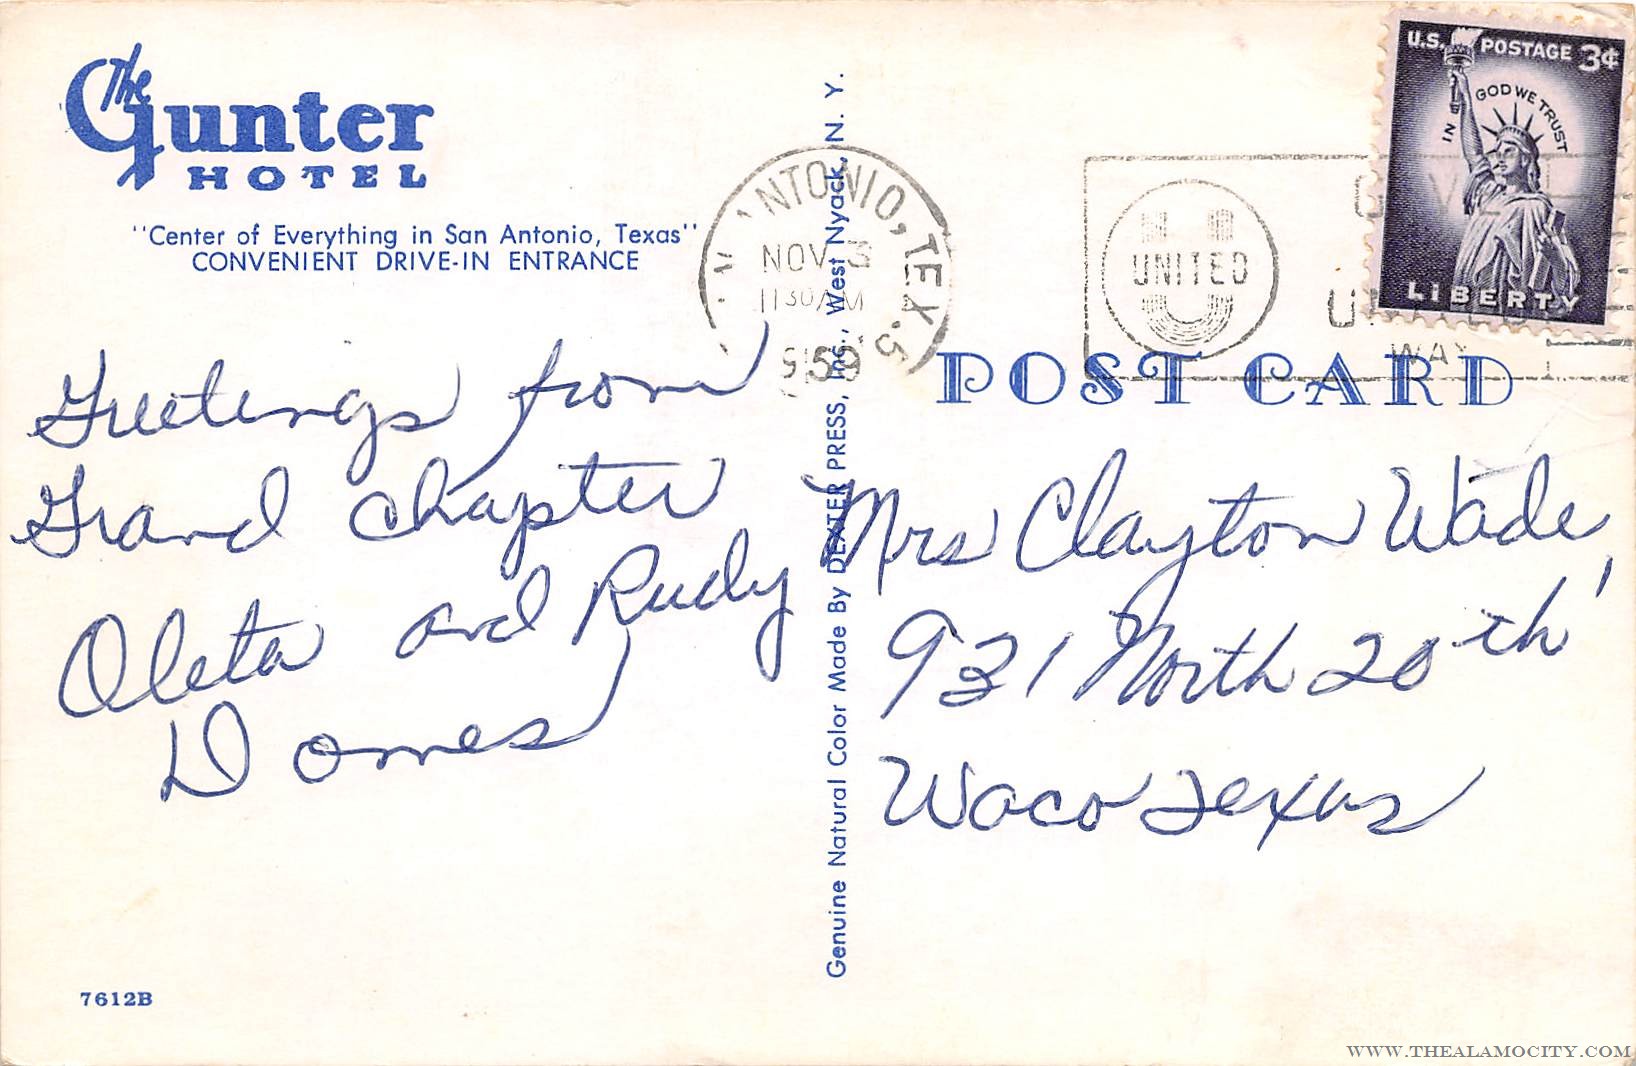 The Gunter
HOTEL
"Center of Everything in San Antonio, Texas"
CONVENIENT DRIVE-IN ENTRANCE
Greetings from
Grand Chapter
Oleta and Rudy
Domes
7612B
Genuine Natural Color Made By DEXTER PRESS, Inc., West Nyack, N. Y.
ANTONIO, TEX.
NOV 3
11 30 AM
1959
UNITED
WAY
U.S. POSTAGE 3¢
IN GOD WE TRUST
LIBERTY
POST CARD
Mrs Clayton Wade,
931 North 20th
Waco Texas
WWW.THEALAMOCITY.COM